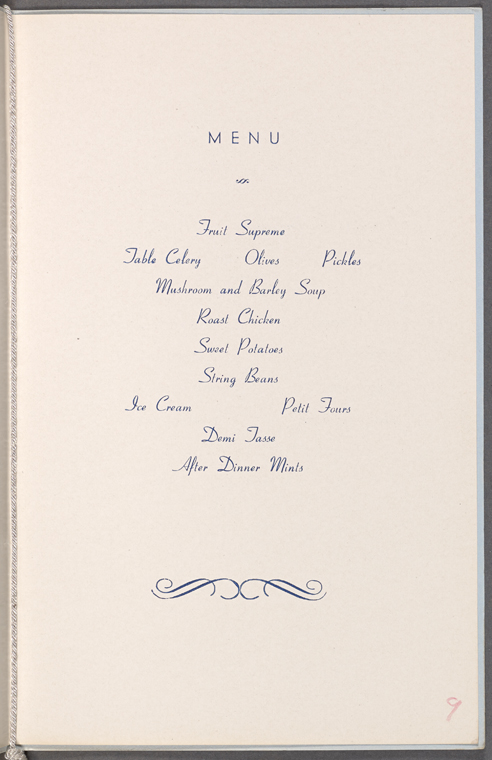 MENU
Fruit Supreme
Table Celery Olives Pickles
Mushroom and Barley Soup
Roast Chicken
Sweet Potatoes
String Beans
Ice Cream Petit Fours
Demi Tasse
After Dinner Mints
9